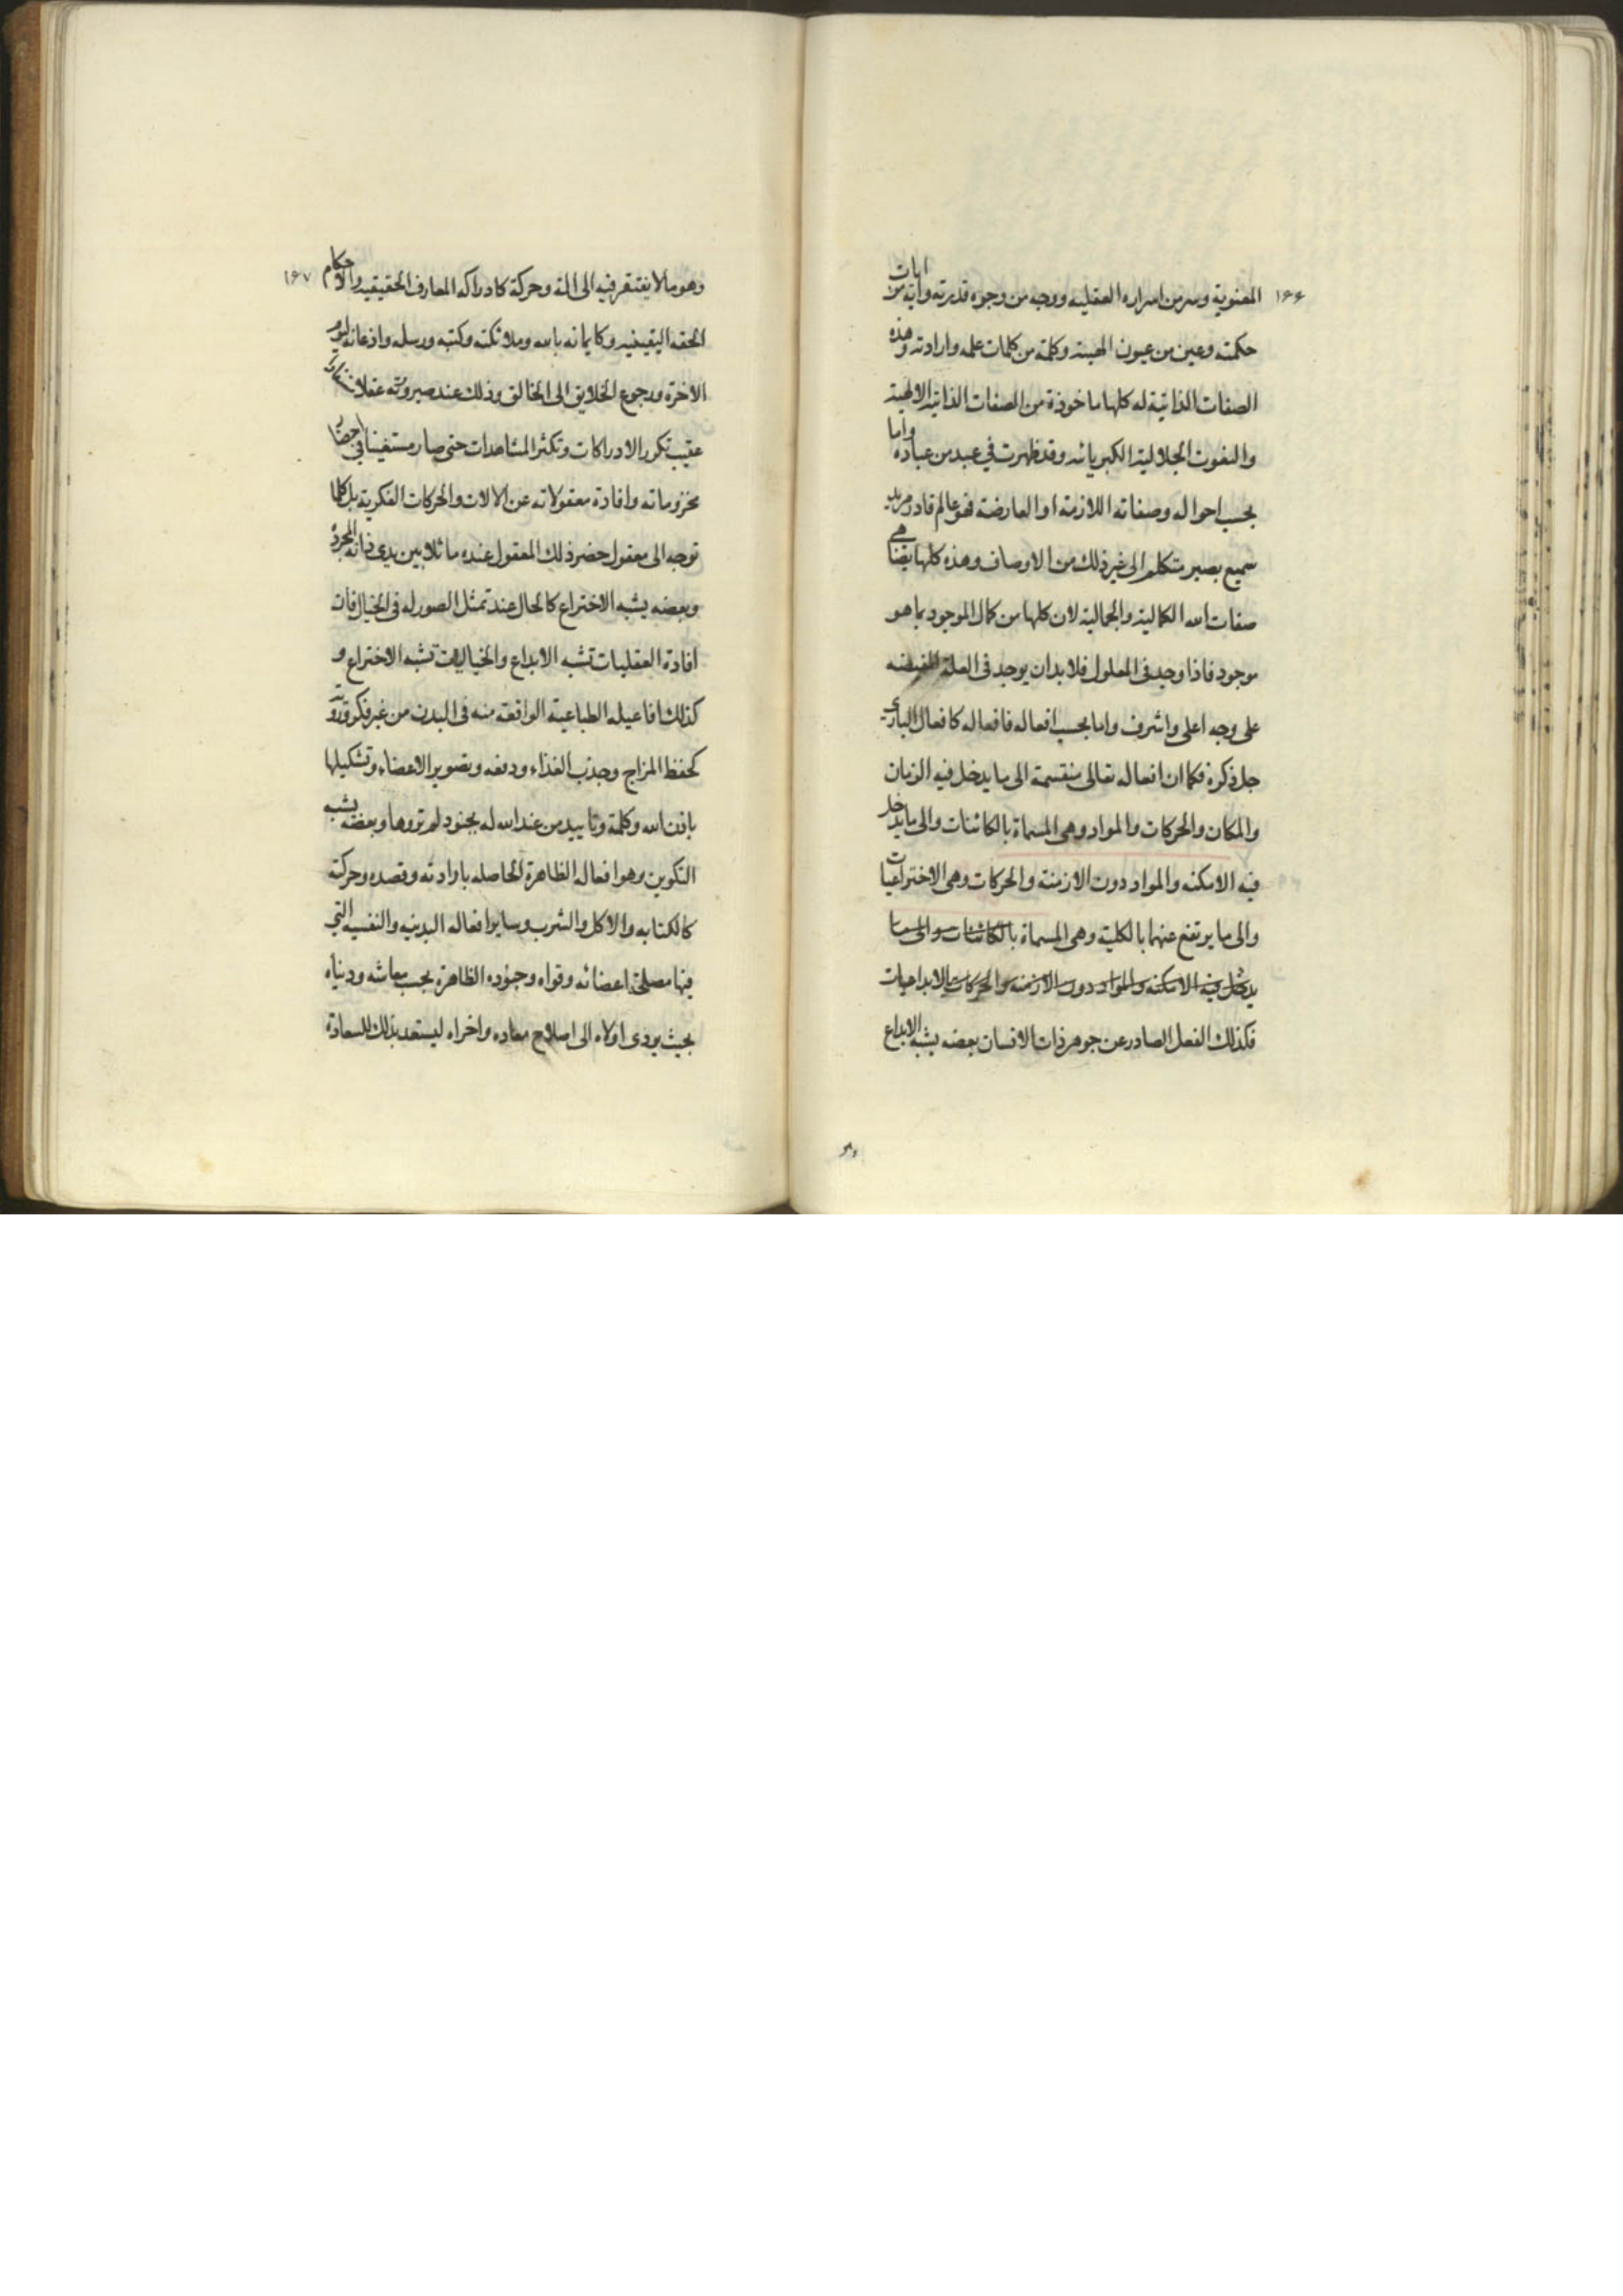 ١۶۶
المعنوية وسر من اسراره العقليه ووجه من وجوه قدرته واية من ايات
حكمته وعين من عيون الهيته وكلمة من كلمات علمه وارادته وهذه
الصفات الذاتية له كلها ماخوذة من الصفات الذاتية الالهية
والنعوت الجلالية الكبريائه وقد ظهرت في عبد من عباده واما
بحسب احواله وصفاته اللازمة او العارضة فهو عالم قادر مريد
سميع بصير متكلم الى غير ذلك من الاوصاف وهذه كلها ايضا هي
صفات الله الكمالية والجمالية لان كلها من كمال الموجود بما هو
موجود فاذا وجد فى المعلول فلا بد ان يوجد فى العلة المفيضه
على وجه اعلى واشرف واما بحسب افعاله فافعاله كافعال البارى
جل ذكره فكما ان افعاله تعالى منقسمة الى ما يدخل فيه الزمان
والمكان والحركات والمواد وهى المسماة بالكائنات والى ما يدخل
فيه الامكنه والمواد دون الازمنة والحركات وهى الاختراعيات
والى ما يرتفع عنهما بالكلية وهى المسماة بالكائنات والى ما
يدخل فيه الامكنه والمواد دون الازمنه والحركات بالابداعيات
فكذلك الفعل الصادر عن جوهر ذات الانسان بعضه يشبه الابداع
وهو
١۶٧
وهو ما لا يفتقر فيه الى الة وحركة كادراكه المعارف الحقيقيه والاحكام
الحقه اليقينيه وكايمانه بالله وملائكته وكتبه ورسله واذعانه ليوم
الاخرة ورجوع الخلايق الى الخالق وذلك عند صيرورته عقلا
عقيب تكرر الادراكات وتكثر المشاهدات حتى صار مستغنيا فى احضار
مخزوناته وافادة معقولاته عن الالات والحركات الفكرية بل كلما
توجه الى معقول حضر ذلك المعقول عنده ماثلا بين يدى ذاته المجردة
وبعضه يشبه الاختراع كالحال عند تمثل الصور له فى الخيال فان
افادة العقليات تشبه الابداع والخياليات تشبه الاختراع و
كذلك افاعيله الطباعية الواقعة منه فى البدن من غير فكر وروية
كحفظ المزاج وجذب الغذاء ودفعه وتصوير الاعضاء وتشكيلها
باذن الله وكلمة وتاييد من عند الله له بجنود لم تروها وبعضه يشبه
التكوين وهو افعاله الظاهرة الحاصله بارادته وقصده وحركة
كالكتابه والاكل والشرب وساير افعاله البدنيه والنفسيه التى
فيها مصلحة اعضائه وقواه وجنوده الظاهرة بحسب معاشه ودنياه
بحيث يودى اولاه الى اصلاح معاده واخراه ليستعد بذلك للسعادة